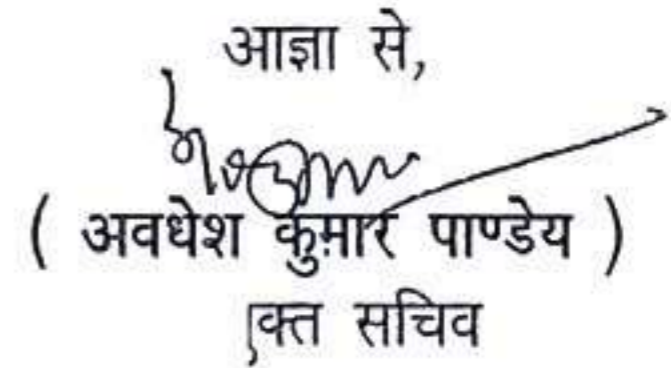 आज्ञा से,
( अवधेश कुमार पाण्डेय )
सचिव